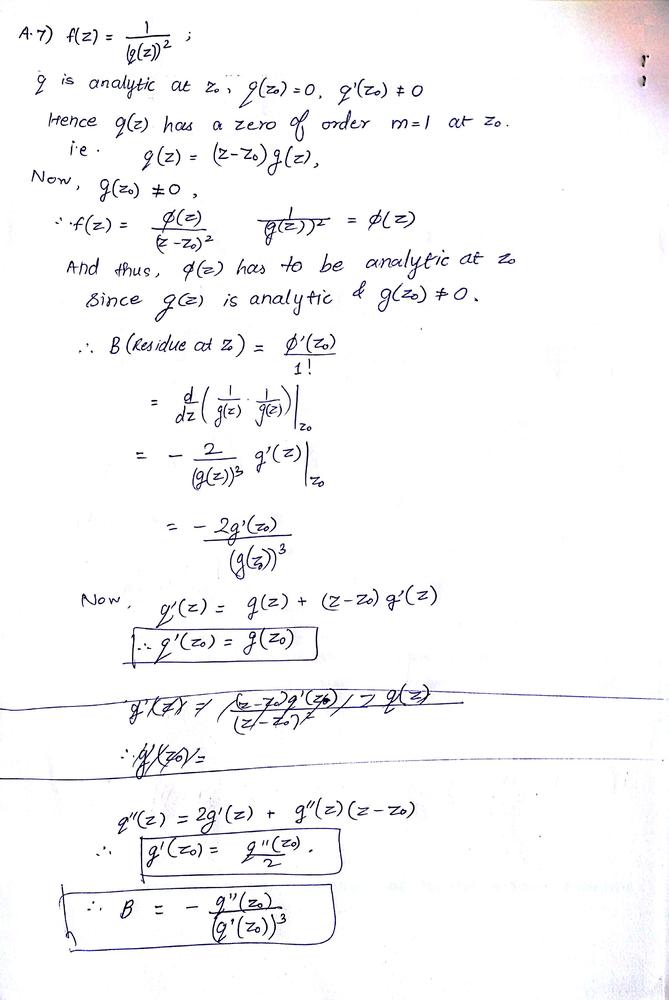 A.7) f(z) = 1/(q(z))² ;
q is analytic at z₀, q(z₀)=0, q'(z₀) ≠ 0
Hence q(z) has a zero of order m=1 at z₀.
i.e. q(z) = (z-z₀)g(z),
Now, g(z₀) ≠ 0,
∴ f(z) = φ(z)/(z-z₀)² 1/(g(z))² = φ(z)
And thus, φ(z) has to be analytic at z₀
Since g(z) is analytic & g(z₀) ≠ 0.
∴ B (Residue at z₀) = φ'(z₀)/1!
= d/dz (1/g(z) · 1/g(z))|z₀
= - 2/(g(z))³ g'(z)|z₀
= - 2g'(z₀)/(g(z₀))³
Now, q'(z) = g(z) + (z-z₀) g'(z)
∴ q'(z₀) = g(z₀)
q''(z) = 2g'(z) + g''(z)(z-z₀)
∴ g'(z₀) = q''(z₀)/2 .
∴ B = - q''(z₀)/(q'(z₀))³